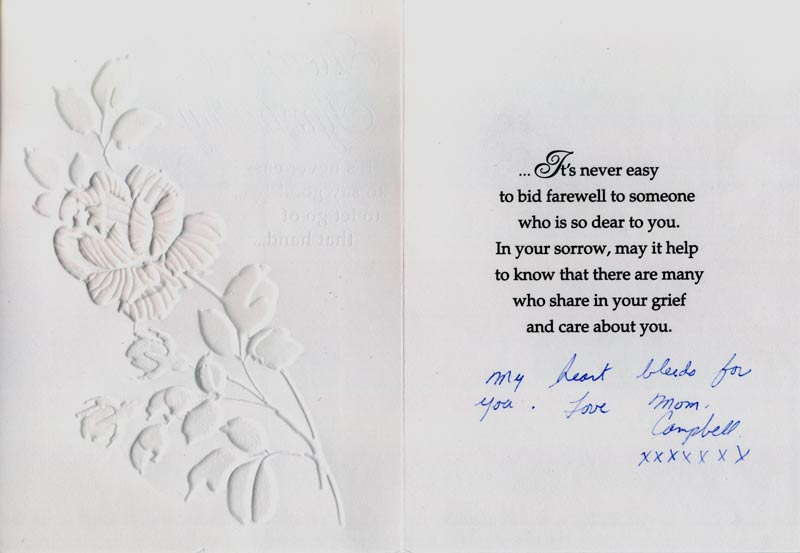 to let go of
that hand...
... It's never easy
to bid farewell to someone
who is so dear to you.
In your sorrow, may it help
to know that there are many
who share in your grief
and care about you.
My heart bleeds for
you. Love Mom.
Campbell.
xxxxxxx